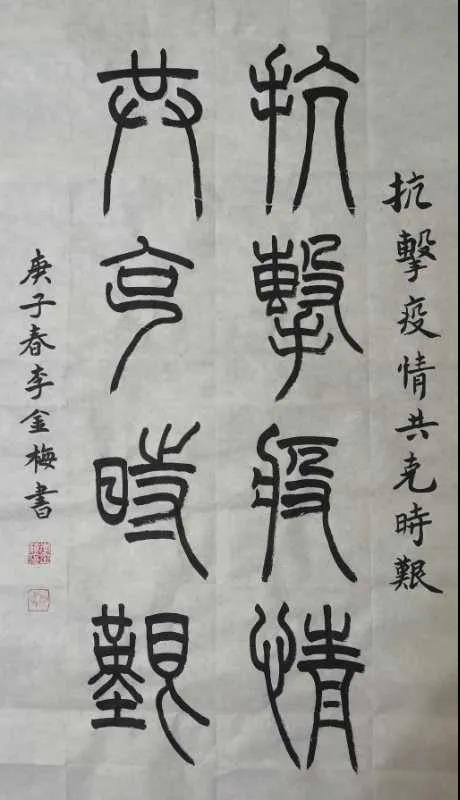 抗擊疫情共克時艱
抗擊疫情
共克時艱
庚子春李金梅書